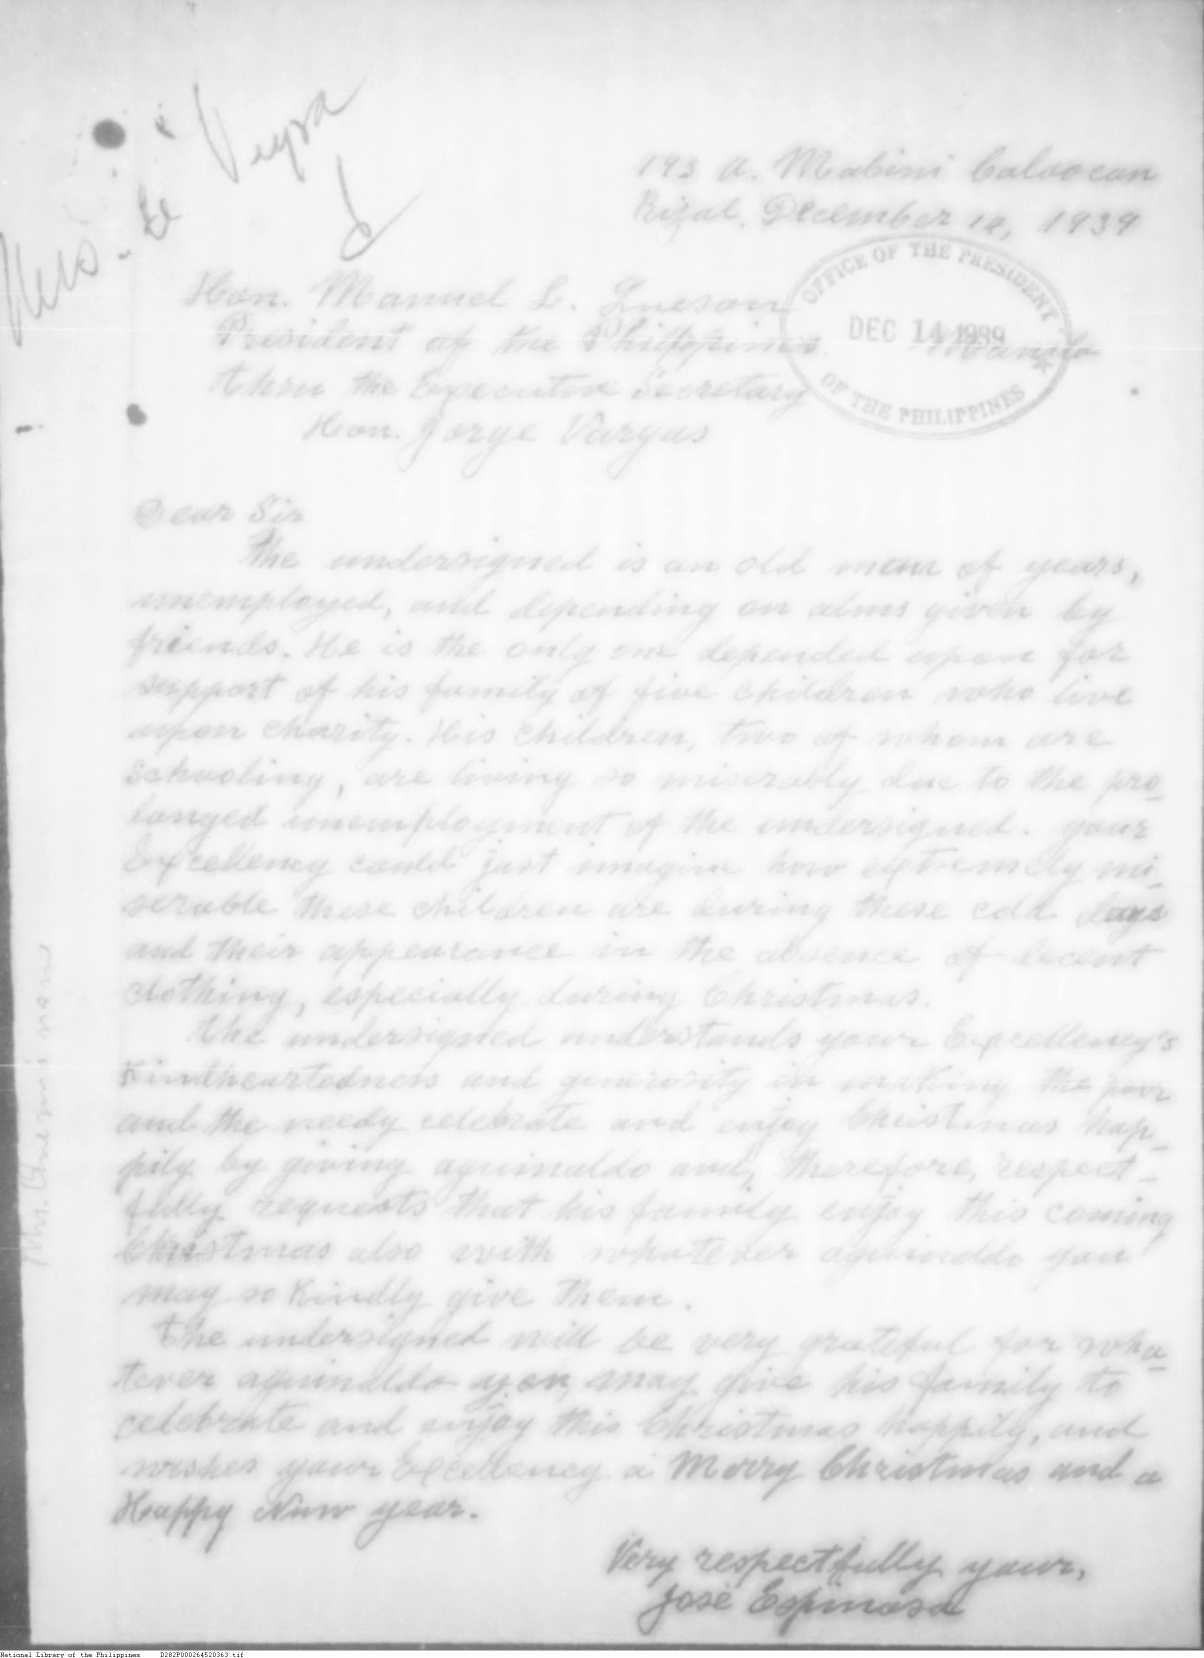 Mrs. de Veyra
193 A. Mabini Caloocan
Rizal, December 14, 1939
Hon. Manuel L. Quezon
President of the Philippines. Manila
OFFICE OF THE PRESIDENT
DEC 14 1939
OF THE PHILIPPINES
thru the Executive Secretary
Hon. Jorge Vargas
Dear Sir
The undersigned is an old man of years,
unemployed, and depending on alms given by
friends. He is the only one depended upon for
support of his family of five children who live
upon charity. His children, two of whom are
schooling, are living so miserably due to the pro-
longed unemployment of the undersigned. your
Excellency could just imagine how extremely mi-
serable these children are during these cold days
and their appearance in the absence of decent
clothing, especially during Christmas.
The undersigned understands your Excellency's
Kindheartedness and generosity in making the poor
and the needy celebrate and enjoy Christmas hap-
pily by giving aguinaldo and, therefore, respect-
fully requests that his family enjoy this coming
Christmas also with whatever aguinaldo you
may so Kindly give them.
The undersigned will be very grateful for wha-
tever aguinaldo you may give his family to
celebrate and enjoy this Christmas happily, and
wishes your Excellency a Merry Christmas and a
Happy New year.
Very respectfully your,
José Espinosa
National Library of the Philippines D282P000264520363.tif